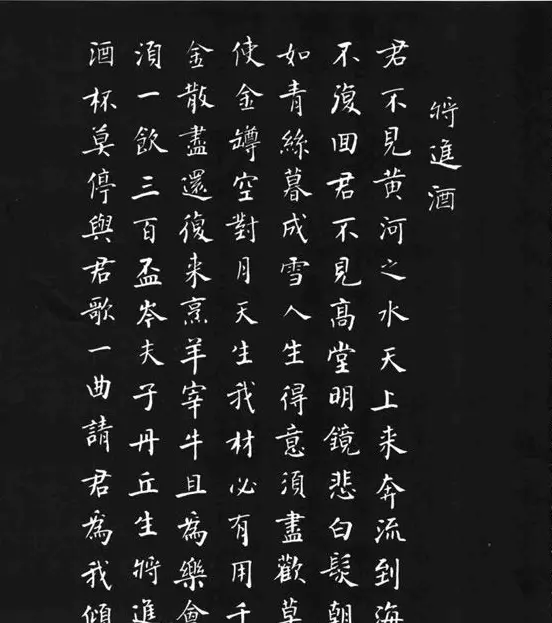 將進酒
君不見黃河之水天上来奔流到海
不復回君不見高堂明鏡悲白髮朝
如青絲暮成雪人生得意須盡歡莫
使金罇空對月天生我材必有用千
金散盡還復来烹羊宰牛且為樂會
須一飲三百盃岑夫子丹丘生將進
酒杯莫停與君歌一曲請君為我傾